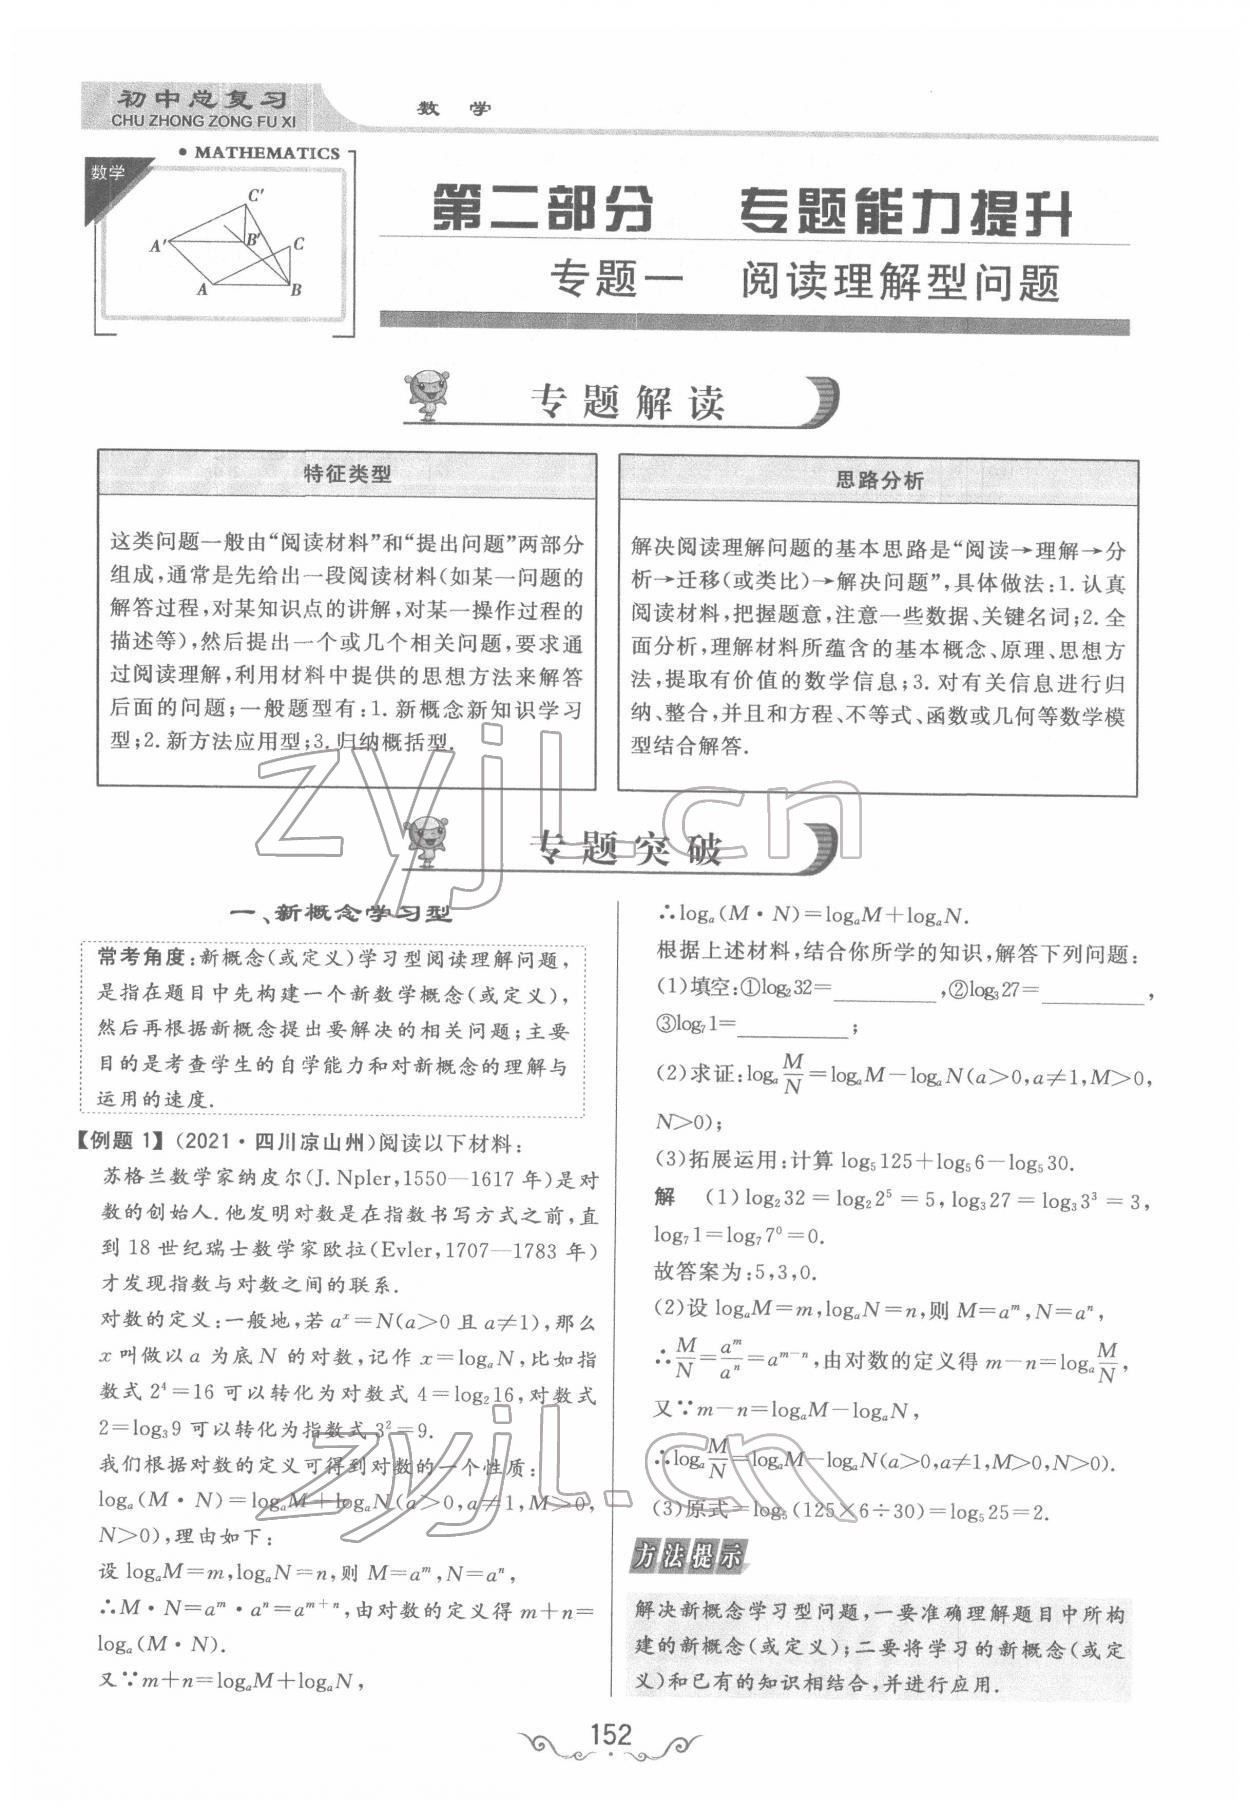 初中总复习
CHU ZHONG ZONG FU XI
数 学
• MATHEMATICS
数学
C′
A′
B′
C
A
B
第二部分 专题能力提升
专题一 阅读理解型问题
专题解读
特征类型
这类问题一般由“阅读材料”和“提出问题”两部分
组成,通常是先给出一段阅读材料(如某一问题的
解答过程,对某知识点的讲解,对某一操作过程的
描述等),然后提出一个或几个相关问题,要求通
过阅读理解,利用材料中提供的思想方法来解答
后面的问题;一般题型有:1. 新概念新知识学习
型;2. 新方法应用型;3. 归纳概括型.
思路分析
解决阅读理解问题的基本思路是“阅读→理解→分
析→迁移(或类比)→解决问题”,具体做法:1. 认真
阅读材料,把握题意,注意一些数据、关键名词;2. 全
面分析,理解材料所蕴含的基本概念、原理、思想方
法,提取有价值的数学信息;3. 对有关信息进行归
纳、整合,并且和方程、不等式、函数或几何等数学模
型结合解答.
zyjl.cn
专题突破
一、新概念学习型
常考角度:新概念(或定义)学习型阅读理解问题,
是指在题目中先构建一个新数学概念(或定义),
然后再根据新概念提出要解决的相关问题;主要
目的是考查学生的自学能力和对新概念的理解与
运用的速度.
【例题 1】(2021·四川凉山州)阅读以下材料:
苏格兰数学家纳皮尔(J. Npler,1550—1617 年)是对
数的创始人.他发明对数是在指数书写方式之前,直
到 18 世纪瑞士数学家欧拉(Evler,1707—1783 年)
才发现指数与对数之间的联系.
对数的定义:一般地,若 aˣ=N(a>0 且 a≠1),那么
x 叫做以 a 为底 N 的对数,记作 x=logₐN,比如指
数式 2⁴=16 可以转化为对数式 4=log₂16,对数式
2=log₃9 可以转化为指数式 3²=9.
我们根据对数的定义可得到对数的一个性质:
logₐ(M·N)=logₐM+logₐN(a>0,a≠1,M>0,
N>0),理由如下:
设 logₐM=m,logₐN=n,则 M=aᵐ,N=aⁿ,
∴M·N=aᵐ·aⁿ=aᵐ⁺ⁿ,由对数的定义得 m+n=
logₐ(M·N).
又∵m+n=logₐM+logₐN,
∴logₐ(M·N)=logₐM+logₐN.
根据上述材料,结合你所学的知识,解答下列问题:
(1)填空:①log₂32=________,②log₃27=________,
③log₇1=________;
(2)求证:logₐM/N=logₐM−logₐN(a>0,a≠1,M>0,
N>0);
(3)拓展运用:计算 log₅125+log₅6−log₅30.
解 (1)log₂32=log₂2⁵=5,log₃27=log₃3³=3,
log₇1=log₇7⁰=0.
故答案为:5,3,0.
(2)设 logₐM=m,logₐN=n,则 M=aᵐ,N=aⁿ,
∴M/N=aᵐ/aⁿ=aᵐ⁻ⁿ,由对数的定义得 m−n=logₐM/N,
又∵m−n=logₐM−logₐN,
∴logₐM/N=logₐM−logₐN(a>0,a≠1,M>0,N>0).
(3)原式=log₅(125×6÷30)=log₅25=2.
zyjl.cn
方法提示
解决新概念学习型问题,一要准确理解题目中所构
建的新概念(或定义);二要将学习的新概念(或定
义)和已有的知识相结合,并进行应用.
152